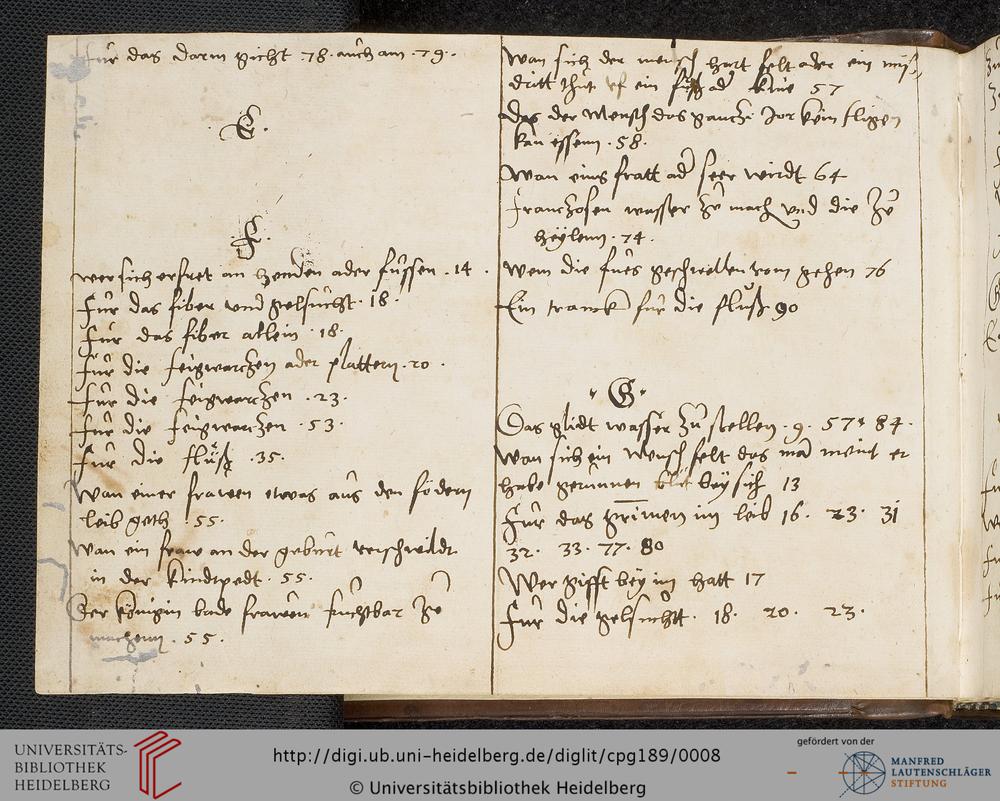 für das darm gicht 78. auch am .79.
E.
F.
wer sich erfret an henden ader füssen .14.
Für das fiber und gelsücht .18.
Für das fiber allein .18.
Für die feigwarczen ader plattern .20.
Für die feigwarczen .23.
Für die feigwarczen .53.
Für die flüsß .35.
Wan einer frawen etwas aus den fodern
leib geth .55.
Wan ein fraw an der gebürt verschwildt
in der kindtpedt .55.
Der königin bade frawen fruchtbar zü
machenn .55.
Wan sich der mensch hart felt ader ein mis
dritt thüt uf ein füsß ad knie 57
Das der Mensch das gancz Jor kein fligen
kan essenn .58.
Wan eins fratt ad seer wirdt 64
Franczosen wasser zü mach und die zü
heÿlenn .74.
Wem die fües geschwellen vom gehen 76
Ein tranck für die flüß 90
G
Das glidt wasser zü stellen .9. 57 84.
Wan sich ein Mensch felt das ma meint er
habe gerünnen blüt beÿ sich 13
Für das grimen im leib 16. 23. 31
32. 33. 77. 80
Wer gifft beÿ im hatt 17
Für die gelsuchtt .18. 20. 23.
UNIVERSITÄTS-
BIBLIOTHEK
HEIDELBERG
http://digi.ub.uni-heidelberg.de/diglit/cpg189/0008
© Universitätsbibliothek Heidelberg
gefördert von der
MANFRED
LAUTENSCHLÄGER
STIFTUNG